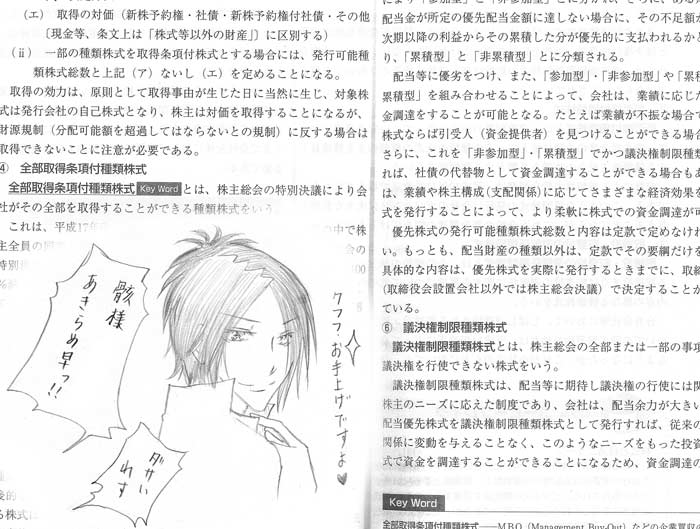 (エ) 取得の対価（新株予約権・社債・新株予約権付社債・その他
「現金等、条文上は「株式等以外の財産」］に区別する）
(ⅱ) 一部の種類株式を取得条項付株式とする場合には、発行可能種
類株式総数と上記（ア）ないし（エ）を定めることになる。
取得の効力は、原則として取得事由が生じた日に当然に生じ、対象株
式は発行会社の自己株式となり、株主は対価を取得することになるが、
財源規制（分配可能額を超過してはならないとの規制）に反する場合は
取得できないことに注意が必要である。
④ 全部取得条項付種類株式
全部取得条項付種類株式 Key Word とは、株主総会の特別決議により会
社がその全部を取得することができる種類株式をいう。
これは、平成17年
の中で株
主全員の同
会の
特別
骸様
あきらめ早っ!!
クフフ、お手上げですよ♥
ダサい
れす
配当金が所定の優先配当金額に達しない場合に、その不足額
次期以降の利益からその累積した分が優先的に支払われるか
り、「累積型」と「非累積型」とに分類される。
配当等に優劣をつけ、また、「参加型」・「非参加型」や「累積
累積型」を組み合わせることによって、会社は、業績に応じた
金調達をすることが可能となる。たとえば業績が不振な場合で
株式ならば引受人（資金提供者）を見つけることができる場合
さらに、これを「非参加型」・「累積型」でかつ議決権制限種類
れば、社債の代替物として資金調達することができる場合もあ
は、業績や株主構成（支配関係）に応じてさまざまな経済効果を
式を発行することによって、より柔軟に株式での資金調達が可
優先株式の発行可能種類株式総数と内容は定款で定めなけれ
い。もっとも、配当財産の種類以外は、定款でその要綱だけを
具体的な内容は、優先株式を実際に発行するときまでに、取締
（取締役会設置会社以外では株主総会決議）で決定することが
ている。
⑥ 議決権制限種類株式
議決権制限種類株式とは、株主総会の全部または一部の事項
議決権を行使できない株式をいう。
議決権制限種類株式は、配当等に期待し議決権の行使には関
株主のニーズに応えた制度であり、会社は、配当余力が大きい
配当優先株式を議決権制限種類株式として発行すれば、従来の
関係に変動を与えることなく、このようなニーズをもった投資
式で資金を調達することができることになるため、資金調達の
Key Word
全部取得条項付種類株式——MBO（Management Buy-Out）などの企業買収